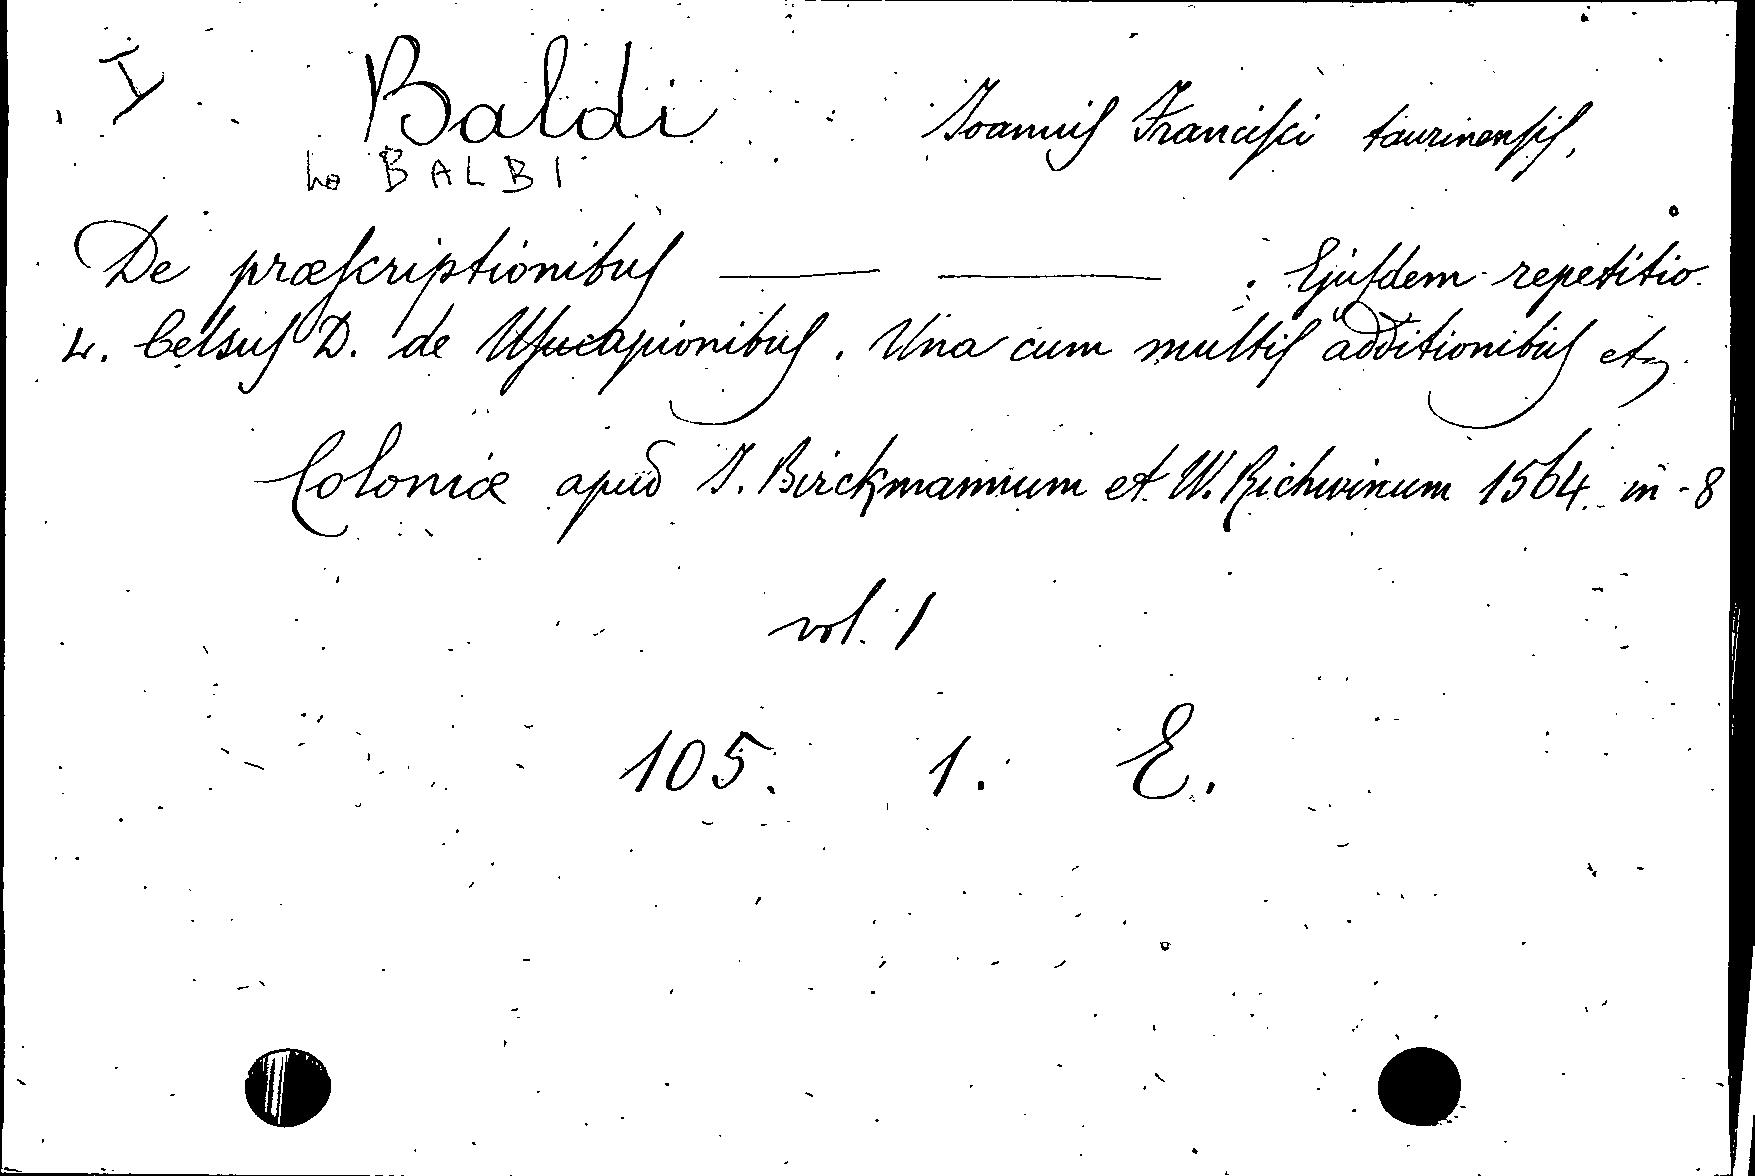 I Baldi Joannis Francisci taurinensis,
↳ BALBI
De præscriptionibus —— —— : Ejusdem repetitio
L. Celsus D. de Usucapionibus. Una cum multis additionibus etc
Coloniæ apud J. Birckmannum et W. Richwinum 1564 in-8
vol. 1
105. 1. E.